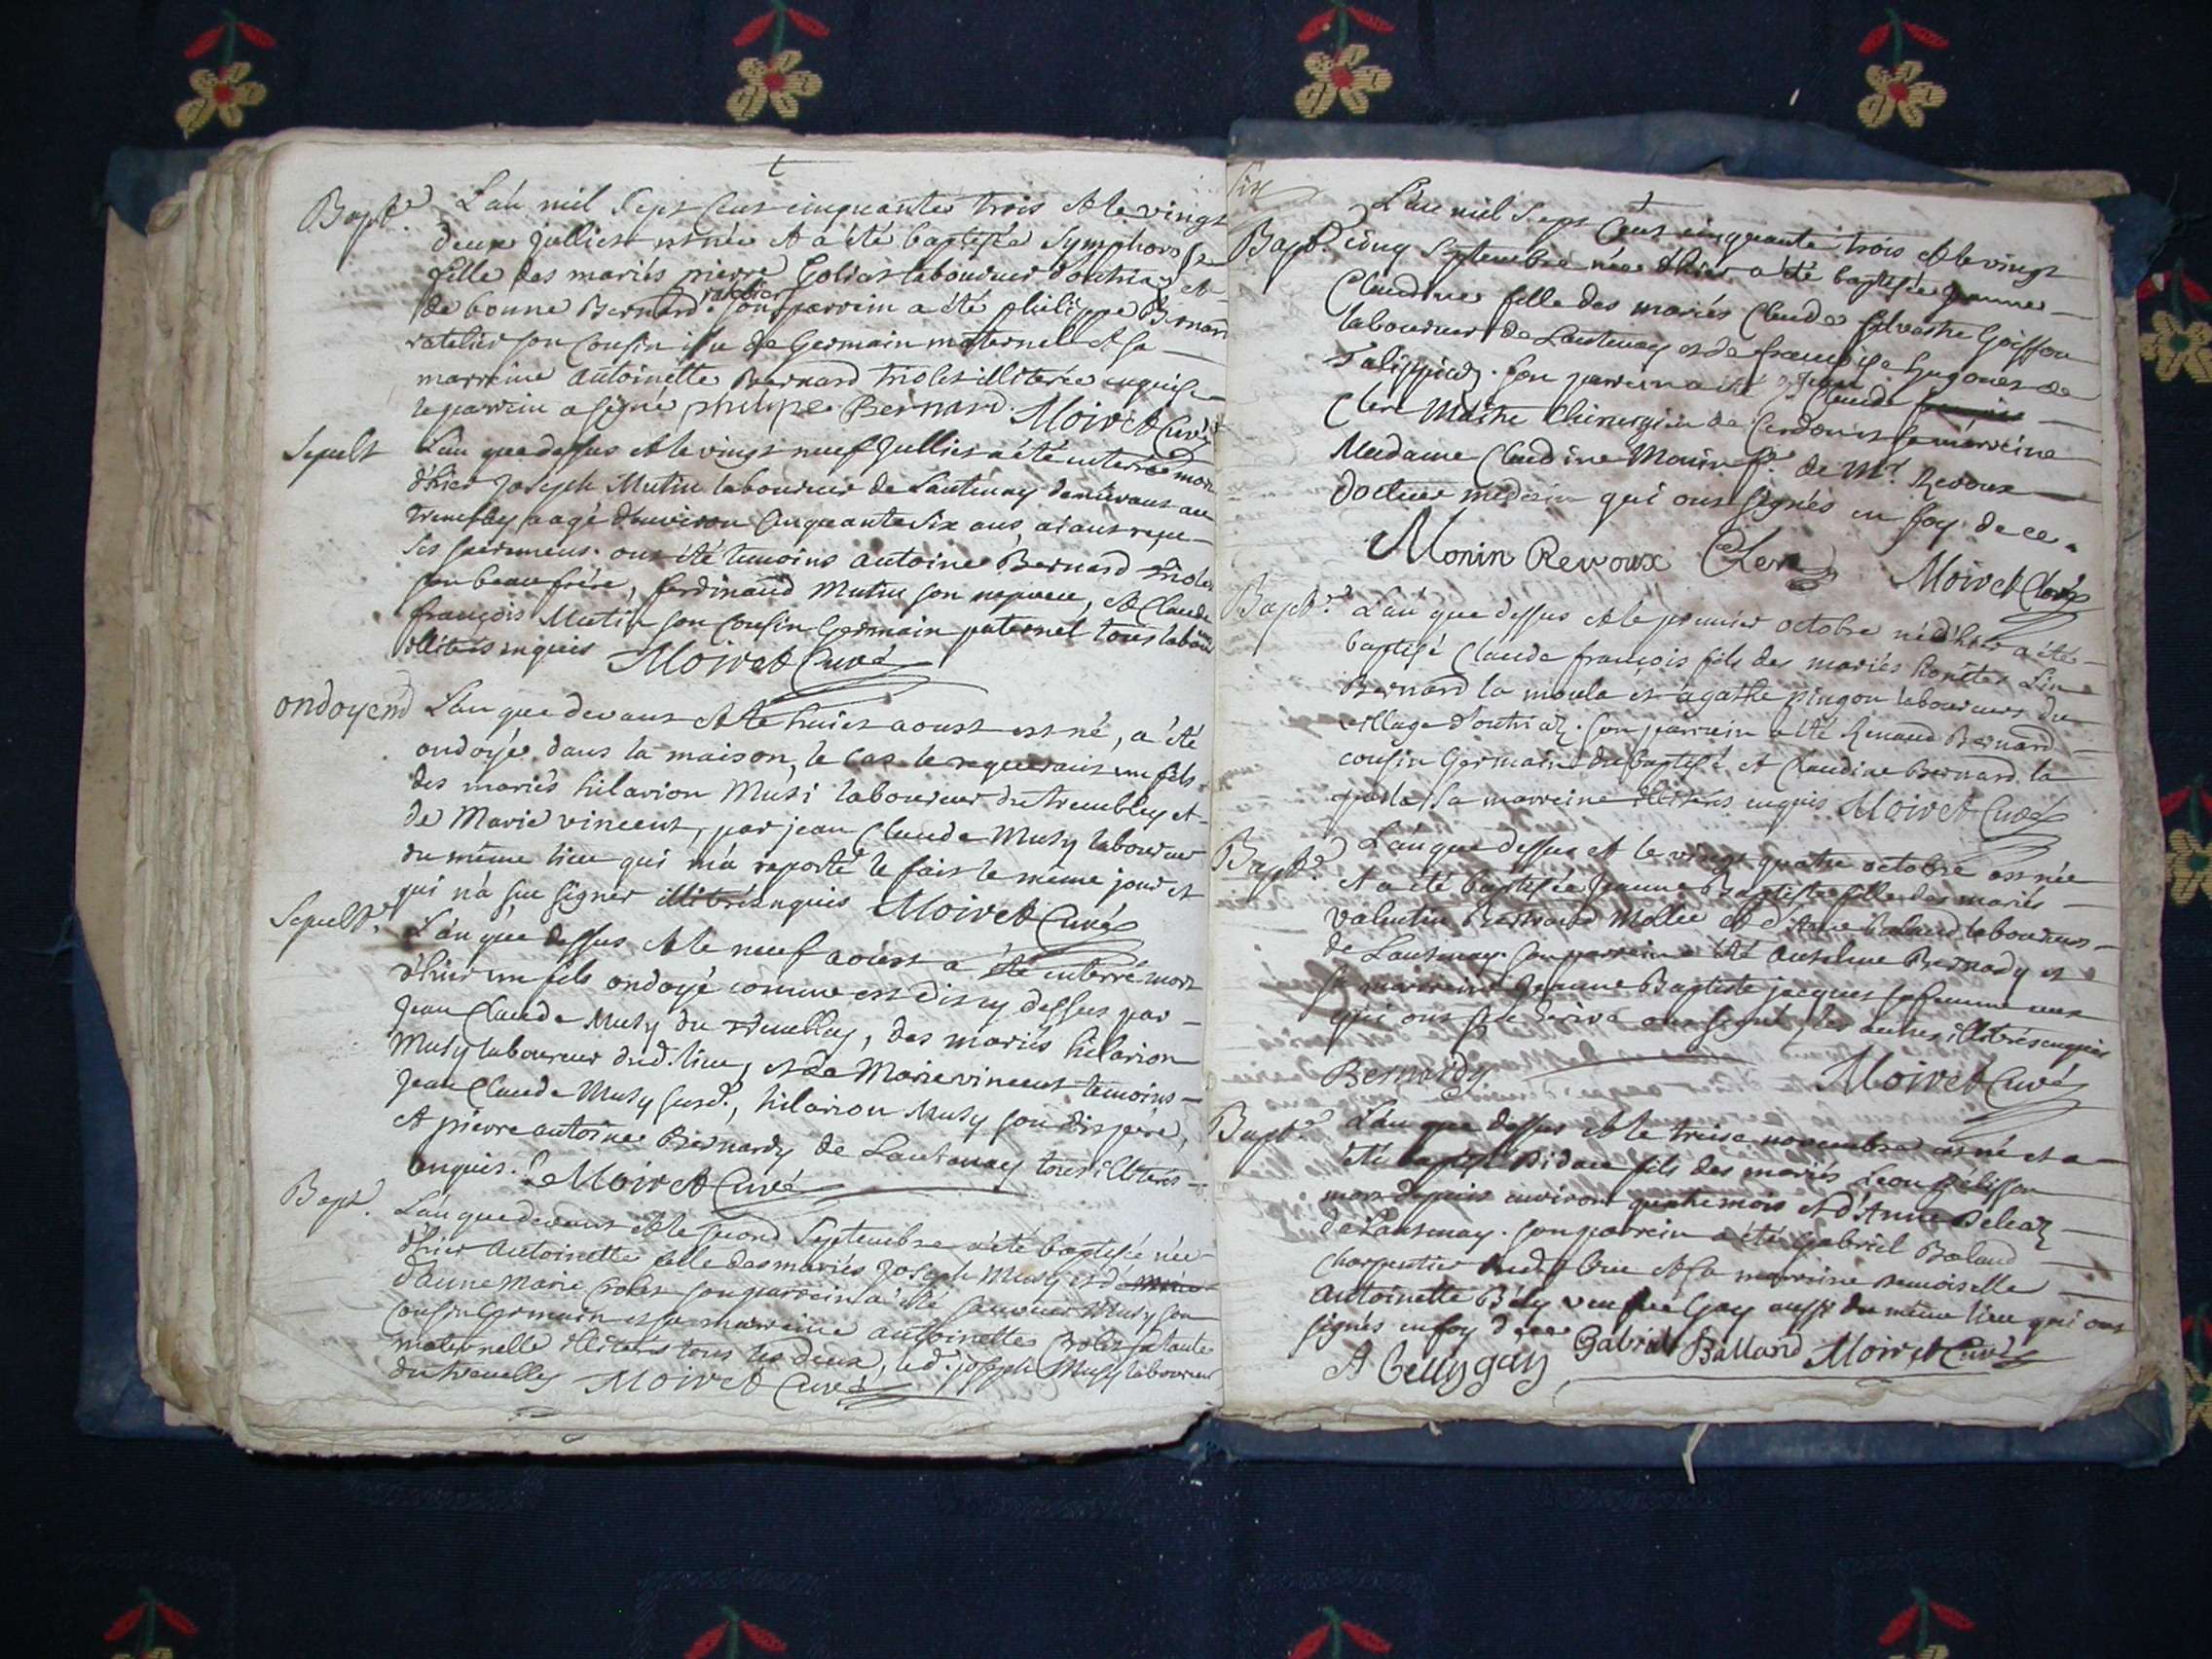 Bapt.
L'an mil Sept Cent cinquante trois et le vingt
deux Julliet est née et a été baptisée Symphorose
fille des mariés pierre Golias laboureur d'outriaz et
de bonne Bernard ratelier son parrein a été philippe Bernard
ratelier son Cousin issu de Germain maternel et sa
marreine antoinette Bernard triolet illiterée enquise
le parrein a signé philipe Bernard. Moiret Curé
Sepult
L'an que dessus et le vingt neuf Julliet a été enterré mort
d'hier Joseph Mutin laboureur de Lantenay demeurant au
tremblay aagé d'environ Cinquante Six ans, aiant reçu
les sacremens. ont été temoins antoine Bernard triolet
son beau frére, ferdinand Mutin son nepveu, et Claude
françois Mutin son Cousin Germain paternel tous labour
illitérés enquis Moiret Curé
ondoyem
L'an que devant et le huict aoust est né, a été
ondoyé dans la maison, le cas le requerant un fils
des mariés hilarion Musi laboureur du tremblay et
de Marie vincent, par jean Claude Musy laboureur
du même lieu qui m'a raporté le fait le même jour et
qui n'a sçu signer illitéré enquis Moiret Curé
Sepult.
L'an que dessus et le neuf aoust a été enterré mort
d'hier un fils ondoyé comme est dit cy dessus par
Jean Claude Musy du tremblay, des mariés hilarion
Musy laboureur dud. lieu, et de Marie vincent temoins
Jean Claude Musy susd., hilarion Musy son dit pere,
et pierre antoine Bernardy de Lantenay tous illitérés
enquis. Moiret Curé
Bapt.
L'an que devant et le second Septembre a été baptisée née
d'hier antoinette fille des mariés Joseph Musy et d'
d'anne marie Crolet son parrein a été Musy son
Cousin Germain et sa marreine antoinette Crolet sa tante
maternelle illiterés tous les deux, led. joseph Musy laboureur
du tremblay Moiret Curé
Six
Bapt.
L'an mil Sept Cent cinquante trois et le vingt
cinq Septembre née d'hier a été baptisée Jeanne
Claudine fille des mariés Claude Silvestre Goiffon
laboureur de Lantenay et de françoise hugonet de
Talissieu. son parrein a été Jean Claude
Clerc Maitre Chirurgien de Cerdon et sa marreine
Madame Claudine Monin f. de Mr. Revoux
docteur médecin qui ont signés en foy de ce.
Monin Revoux Clerc Moiret Curé
Bapt.
L'an que dessus et le premier octobre né d'hier a été
baptisé Claude françois fils des mariés honêtes
Bernard la moula et agathe pingon laboureurs du
village d'outriaz. son parrein a été Renaud Bernard
cousin Germain du baptisé et Claudine bernard la
sa marreine illitérés enquis Moiret Curé
Bapt.
L'an que dessus et le vingt quatre octobre est née
et a été baptisée Jeanne Baptiste fille des mariés
valentin Bertrand Mollie et balland laboureurs
de Lantenay. son parrein a été anselme Bernardy et
sa marreine Jeanne Baptiste jacquet sa femme
qui ont sçu écrire ont signé, les autres illitérés enquis
Bernardy Moiret Curé
Bapt.
L'an que dessus et le treise novembre est né et a
été baptisé Didace fils des mariés Leon Pélisson
mort depuis environ quatre mois et d'Anne Déléaz
de Lantenay. son parrein a été Gabriel Baland
charpentier dud. lieu et sa marreine Demoiselle
antoinette Bély veufve Gay aussi du même lieu qui ont
signés en foy de ce Gabriel Balland Moiret Curé
A belly gay